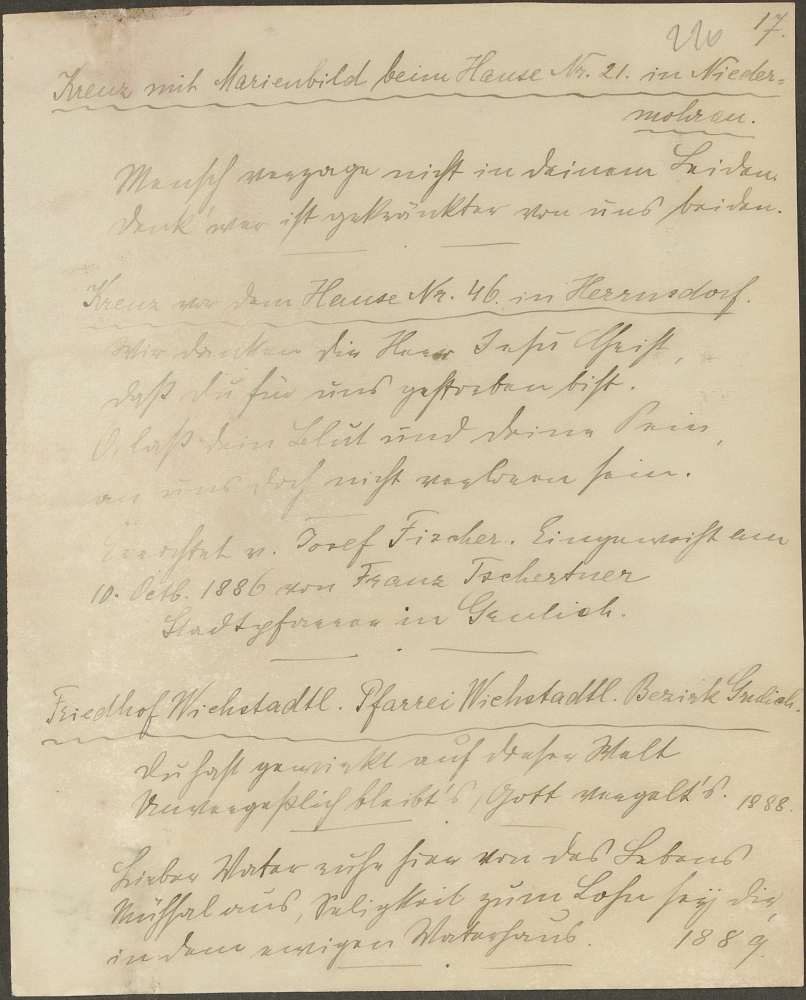 17.
Kreuz mit Marienbild beim Hause Nr. 21. in Nieder=
mohrau.
Mensch verzage nicht in deinem Leiden.
Denk' wer ist gekränkter von uns beiden.
Kreuz vor dem Hause Nr. 46. in Herrnsdorf.
Wir danken dir Herr Jesu Christ,
daß du für uns gestorben bist.
O, laß dein Blut und deine Pein,
an uns doch nicht verloren sein.
Errichtet v. Josef Fischer. Eingeweiht am
10. Octb. 1886 von Franz Tschertner
Stadtpfarrer in Grulich.
Friedhof Wichstadtl. Pfarrei Wichstadtl. Bezirk Grulich.
Du hast gewirkt auf dieser Welt
Unvergeßlich bleibt's, Gott vergelt's. 1888.
Lieber Vater ruhe hier von des Lebens
Mühsal aus, Seligkeit zum Lohn sey dir,
in dem ewigen Vaterhaus. 1889.